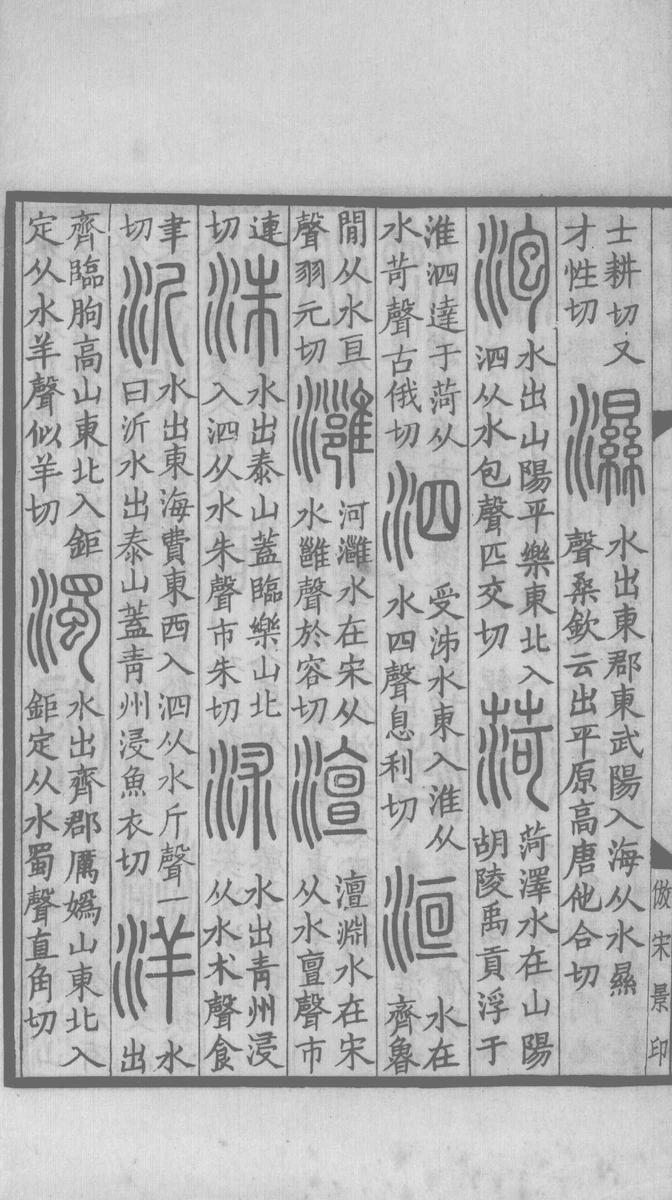 士耕切又
才性切
濕
水出東郡東武陽入海从水㬎
聲桑欽云出平原高唐他合切
泡
水出山陽平樂東北入
泗从水包聲匹交切
菏
菏澤水在山陽
胡陵禹貢浮于
淮泗達于菏从
水苛聲古俄切
泗
受泲水東入淮从
水四聲息利切
洹
水在
齊魯
閒从水亘
聲羽元切
灉
河灉水在宋从
水雝聲於容切
澶
澶淵水在宋
从水亶聲市
連
切
洙
水出泰山蓋臨樂山北
入泗从水朱聲市朱切
沭
水出青州浸
从水术聲食
聿
切
沂
水出東海費東西入泗从水斤聲一
曰沂水出泰山蓋青州浸魚衣切
洋
水
出
齊臨朐高山東北入鉅
定从水羊聲似羊切
濁
水出齊郡厲嬀山東北入
鉅定从水蜀聲直角切
倣宋景印